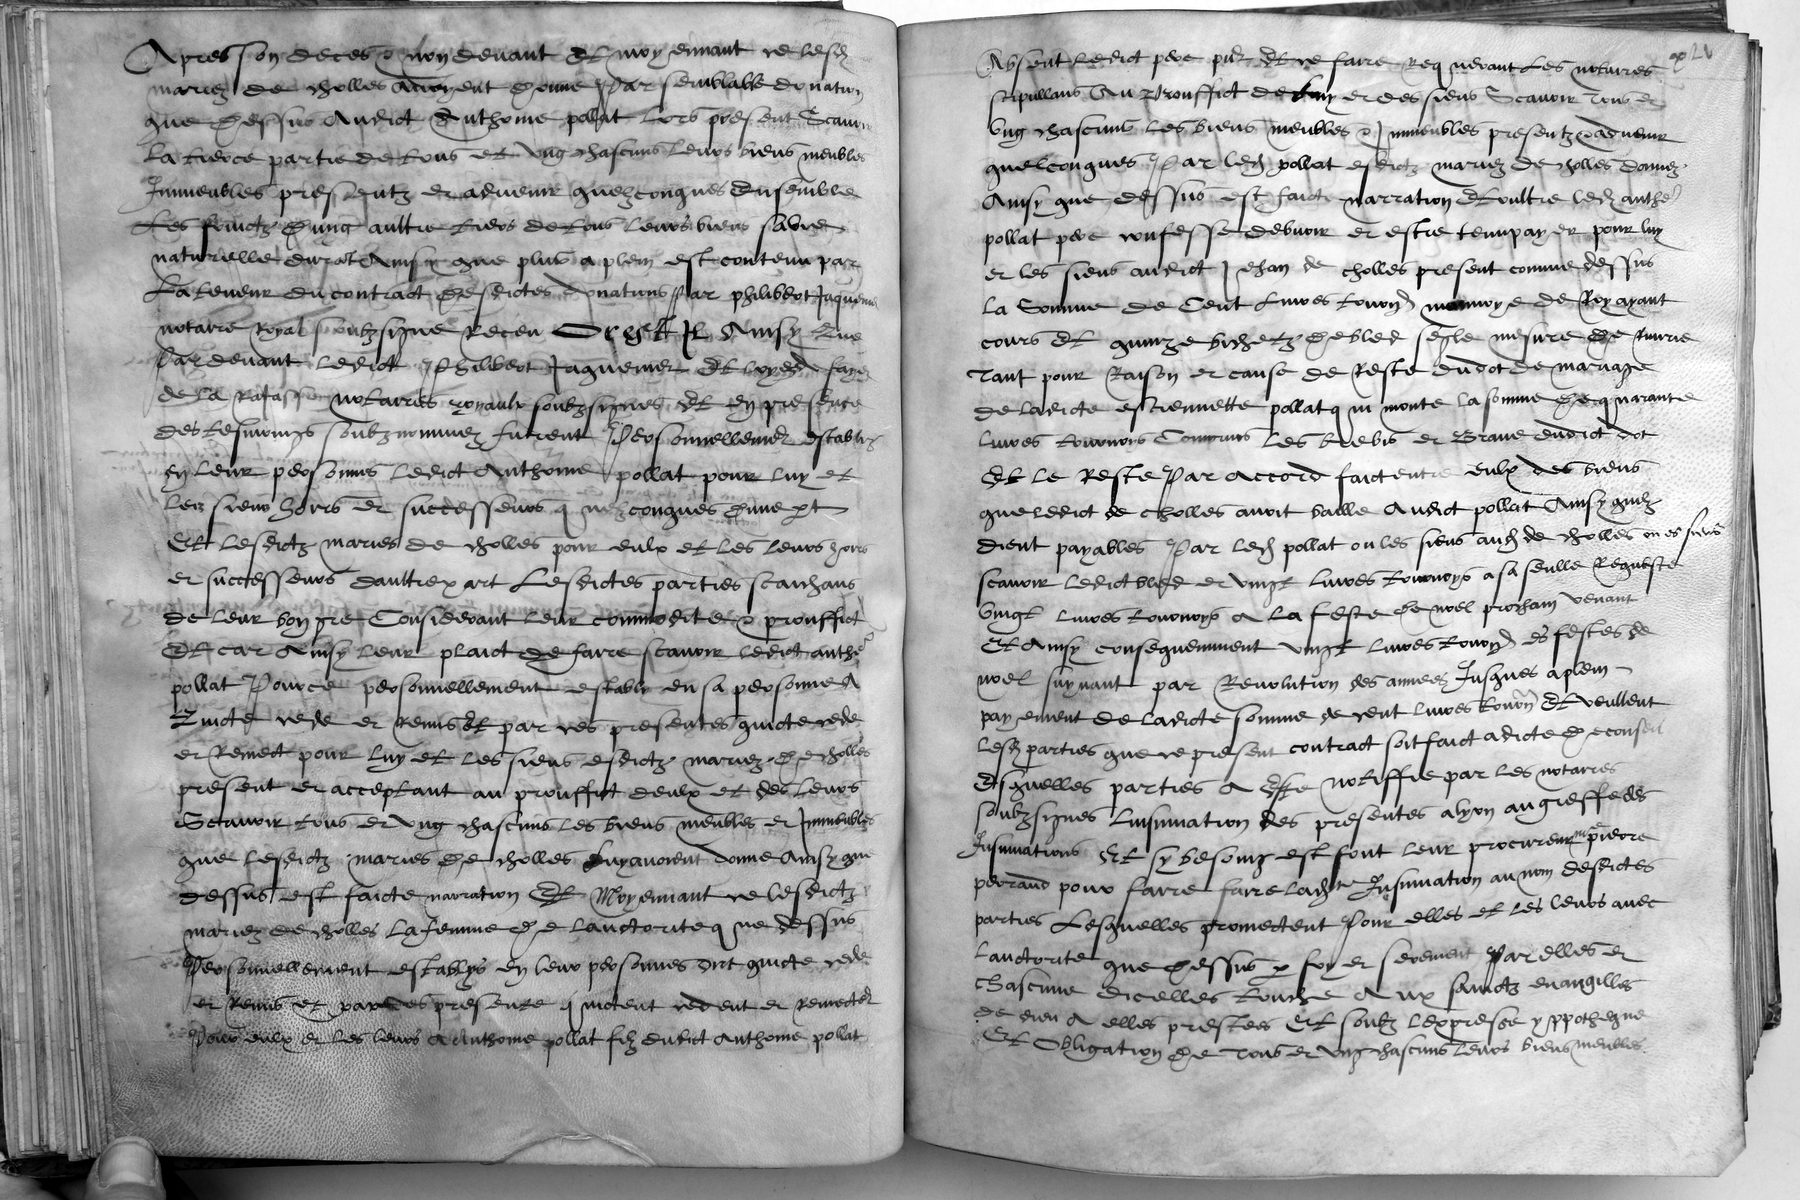 Apres son deces & non devant Et moyennant ce lesd
mariez de cholles avoyent donne Par semblable donation
que dessus Audict Anthoine pollat Lors present Scavoir
La tierce partie de tous et ung chascuns leurs biens meubles
Immeubles presentz et advenir quelzconques Ensemble
Les fruictz d'ung aultre tiers de tous leurs biens sa vie
naturelle durat Ainsy que plus a plein est contenu par
La teneur du contract desdictes donations Par philibert Jaquemet
notaire royal soubzsigne Receu Or est Il Ainsy Que
Par devant ledict Philibert Jaquemet Et
de la notaires royaulx soubzsignes Et en presence
des tesmoings soubz nommez furent Personnellement establiz
en leur personnes ledict Anthoine pollat pour luy et
les siens hoirs et successeurs quelzconques d'une pt
Et lesdictz maries de cholles pour eulx et les leurs hoirs
et successeurs daultre part Lesdictes parties scaichans
de leur bon gre Considerant leur commodite & prouffict
Et car Ainsy leur plaict de faire scavoir ledict anthe
pollat Pource personnellement estably en sa personne A
Quicte cede et remis Et par ces presentes quicte cede
et Remect pour luy et les siens esdictz mariez de cholles
present et acceptant au prouffict deulx et des leurs
Scavoir tous et ung chascuns les biens meubles et Immeubles
que lesdictz maries de cholles luy avoient donne Ainsy que
dessus est faicte narration Et Moyennant ce lesdictz
mariez de cholles La femme de lauctorite que dessus
Personnellement establys en leur personnes ont quicte cede
et Remis et par ces presente quictent cedent et remectent
Pour eulx et les leurs A Anthoine pollat filz dudict Anthoine pollat
Absent Ledict pere pnt Et ce faire requerant Les notaires
stipullans Au Prouffict de luy et des siens Scavoir Tous et
Ung chascuns les biens meubles & Immeubles presentz & advenir
quelconques Par led pollat esdictz mariez de cholles donnez
Ainsy que dessus est faicte narration Et oultre led anthe
pollat pere confesse debvoir et estre tenu payer pour luy
et les siens audict Jehan de cholles present comme dessus
La Somme de Cent Livres tournoys monnoye de Roy ayant
cours Et quinze bichetz de bled segle mesure de
Tant pour Raison et cause de Reste du dot de mariage
de ladicte estiennette pollat qui monte la somme de quarante
livres tournoys Comprins les brebis et dudict dot
Et le Reste Par accord faict entre eulx des biens
que ledict de cholles avoit baille Audict pollat Ainsy quilz
dient payables Par led pollat ou les siens aud de cholles ou es siens
scavoir ledict bled et vingt livres tournoys a sa seulle Requeste
Vingt livres tournoys A La feste de noel prochain venant
Et Ainsy consequemment vingt livres tournoys es festes de
noel suyvant par Revolution des annees Jusques a plein
payement de ladicte somme de cent livres tourn Et veullent
lesd parties que ce present contract soit faict a dicte de conseil
Esquelles parties A este notiffie par les notaires
soubzsignes Linsinuation des presentes a lyon au greffe des
Insinuations Et sy besoing est font leur procureur me pierre
perraud pour faire faire ladicte Insinuation au nom desdictes
parties Lesquelles promectent Pour elles et les leurs avec
lauctorite que dessus p foy et serement Par elles et
chascune dicelles touche Aux sainctz evangilles
de dieu A elles prestees Et soubz lexpresse yppotheque
Et Obligation de Tous et ung chascuns leurs biens meubles